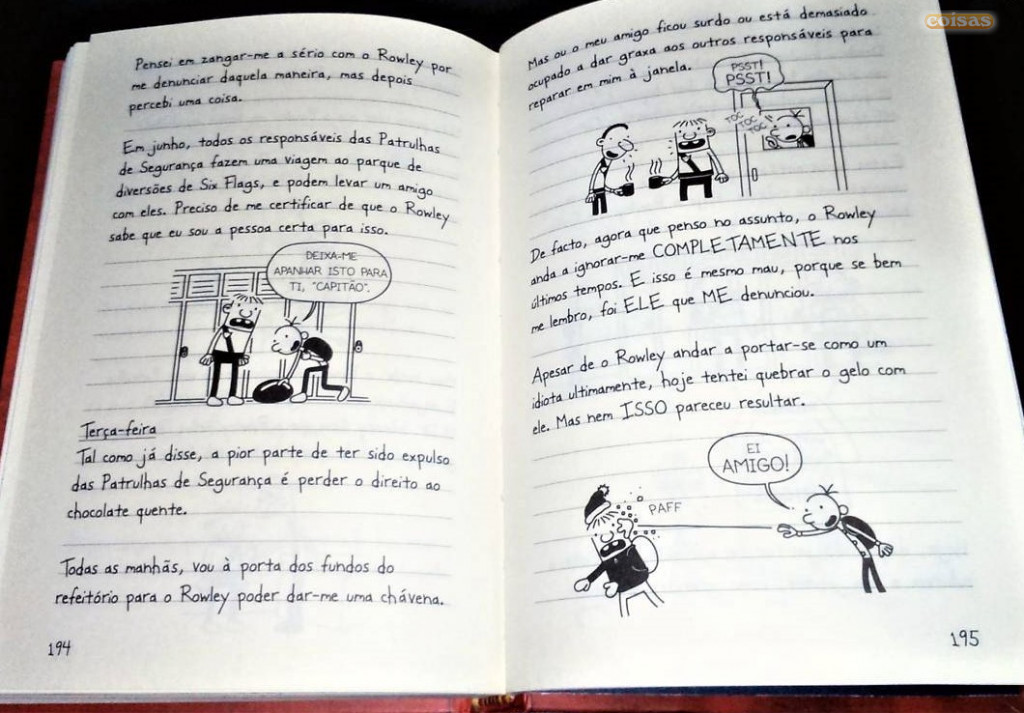 Pensei em zangar-me a sério com o Rowley por
me denunciar daquela maneira, mas depois
percebi uma coisa.
Em junho, todos os responsáveis das Patrulhas
de Segurança fazem uma viagem ao parque de
diversões de Six Flags, e podem levar um amigo
com eles. Preciso de me certificar de que o Rowley
sabe que eu sou a pessoa certa para isso.
DEIXA-ME
APANHAR ISTO PARA
TI, "CAPITÃO".
Terça-feira
Tal como já disse, a pior parte de ter sido expulso
das Patrulhas de Segurança é perder o direito ao
chocolate quente.
Todas as manhãs, vou à porta dos fundos do
refeitório para o Rowley poder dar-me uma chávena.
194
coisas
Mas ou o meu amigo ficou surdo ou está demasiado
ocupado a dar graxa aos outros responsáveis para
reparar em mim à janela.
PSST!
PSST!
TOC
TOC
TOC
De facto, agora que penso no assunto, o Rowley
anda a ignorar-me COMPLETAMENTE nos
últimos tempos. E isso é mesmo mau, porque se bem
me lembro, foi ELE que ME denunciou.
Apesar de o Rowley andar a portar-se como um
idiota ultimamente, hoje tentei quebrar o gelo com
ele. Mas nem ISSO pareceu resultar.
EI
AMIGO!
PAFF
195